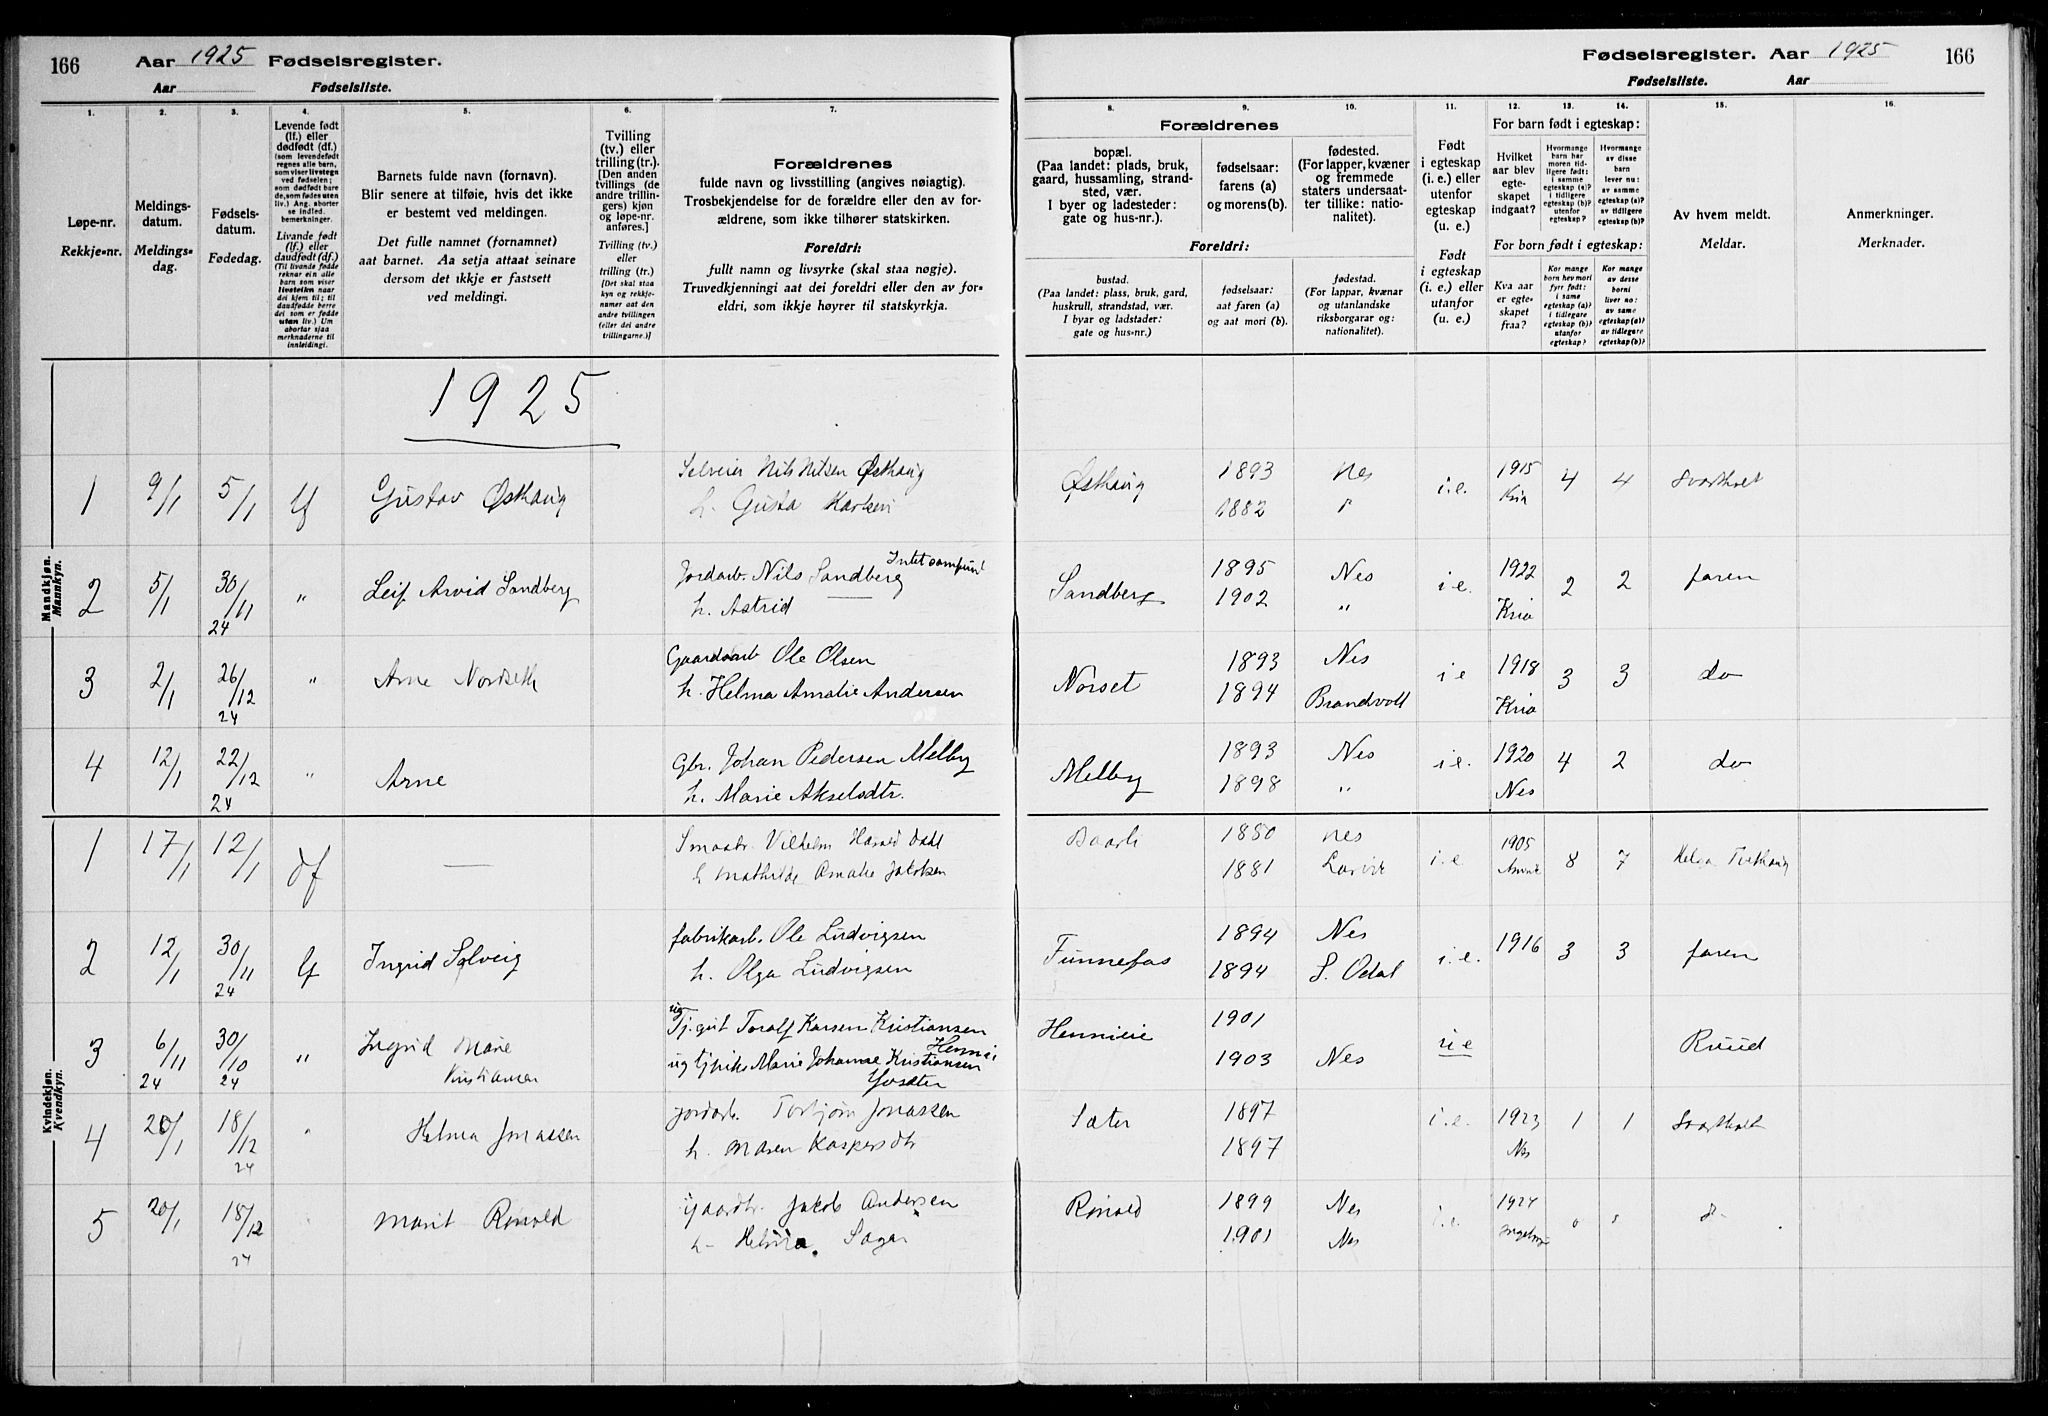 166 Aar 1925 Fødselsregister.
Aar Fødselsliste.
Fødselsregister. Aar 1925 166
Fødselsliste. Aar
1.
Løpe-nr.
Rekkje-nr.
2.
Meldings-
datum.
Meldings-
dag.
3.
Fødsels-
datum.
Fødedag.
4.
Levende født
(lf.) eller
dødfødt (df.)
(som levendefødt
regnes alle barn,
som viser livstegn
ved fødselen;
som dødfødt bare
de, som fødes uten
liv.) Ang. aborter
se indled.
bemerkninger.
Livande født
(lf.) eller
daudfødt (df.)
(Til livande fødde
reknar ein alle
barn som viser
livsteikn naar
dei kjem til; til
daudfødde berre
dei som er fødde
utan liv.) Um
abortar sjaa
merknaderne til
innleidingi.
5.
Barnets fulde navn (fornavn).
Blir senere at tilføie, hvis det ikke
er bestemt ved meldingen.
Det fulle namnet (fornamnet)
aat barnet. Aa setja attaat seinare
dersom det ikkje er fastsett
ved meldingi.
6.
Tvilling
(tv.) eller
trilling (tr.).
[Den anden
tvillings (de
andre trillin-
gers) kjøn
og løpe-nr.
anføres.]
Tvilling (tv.)
eller
trilling (tr.)
[Det skal staa
kyn og rekkje-
numer aat den
andre tvillingen
(eller dei andre
trillingarne.)]
7.
Forældrenes
fulde navn og livsstilling (angives nøiagtig).
Trosbekjendelse for de forældre eller den av for-
ældrene, som ikke tilhører statskirken.
Foreldri:
fullt namn og livsyrke (skal staa nøgje).
Truvedkjenningi aat dei foreldri eller den av for-
eldri, som ikkje høyrer til statskyrkja.
8. 9. 10.
Forældrenes
bopæl.
(Paa landet: plads, bruk,
gaard, hussamling, strand-
sted, vær.
I byer og ladesteder:
gate og hus-nr.).
fødselsaar:
farens (a)
og morens(b).
fødested.
(For lapper, kvæner
og fremmede
staters undersaat-
ter tillike: natio-
nalitet).
Foreldri:
bustad.
(Paa landet: plass, bruk, gard,
huskrull, strandstad, vær.
I byar og ladstader:
gate og hus-nr.)
fødselsaar:
aat faren (a)
og aat mori (b).
fødestad.
(For lappar, kvænar
og utanlandske
riksborgarar og:
nationalitet).
11.
Født
i egteskap
(i. e.) eller
utenfor
egteskap
(u. e.)
Født
i egteskap
(i. e.) eller
utanfor
egteskap
(u. e.)
12. 13. 14.
For barn født i egteskap:
Hvilket
aar blev
egte-
skapet
indgaat?
Hvormange
barn har
moren tid-
ligere født:
i samme
egteskap (a)?
i tidligere
egteskap (b)?
utenfor
egteskap?
Hvormange
av disse
barn
lever nu:
av samme
egteskap (a)?
av tidligere
egteskap (b)?
For born født i egteskap:
Kva aar
er egte-
skapet
fraa?
Kor mange
born hev mori
fyrr født:
i same
egteskap (a)?
i tidlegare
egteskap (b)?
utanfor
egteskap?
Kor mange
av desse
borni
liver no:
av same
egteskap(a)?
av tidlegare
egteskap(b)?
15.
Av hvem meldt.
Meldar.
16.
Anmerkninger.
Merknader.
1925
Mandkjøn.
Mannkyn.
1 9/1 5/1 lf Gustav Østhaug Nils Nilsen Østhaug Østhaug 1893 Nes i.e. 1915 4 4
h. Gusta Karlsen 1882 Kria
2 5/1 30/11 24 " Leif Arvid Sandberg Jordarb. Nils Sandberg Sandberg 1895 Nes i.e. 1922 2 2 faren
h. Astrid 1902 " Kria
3 2/1 26/12 24 " Arne Nordseth Gaardsarb Ole Olsen Norset 1893 Nes i e 1918 3 3 do
h. Helma Amalie Andersen 1894 Brandvoll Kria
4 12/1 22/12 24 " Arne Gbr. Johan Pedersen Melby Melby 1893 Nes i.e. 1920 4 2 do
h. Marie Akselsdtr. 1898 " Nes
Kvindekjøn.
Kvendkyn.
1 17/1 12/1 df — Smaabr. Vilhelm Harald Dahl 1880 Nes i.e 1905 8 7 Helga
h Mathilde Amalie Jakobsen 1881 Larvik
2 12/1 30/11 24 lf Ingrid Solveig fabrikarb. Ole Ludvigsen Funnefos 1894 Nes i.e. 1916 3 3 faren
h. Olga Ludvigsen 1894 S. Odal
3 6/11 24 30/10 24 " Ingrid Marie Kristiansen ug Tj.gut Toralf Karsen Kristiansen Hennieie 1901 u e Ruud
ug tjpike Marie Johanne Kristiansen 1903 Nes
4 20/1 18/12 24 " Helma Jonassen Jordarb. Torbjørn Jonassen Sæter 1897 i.e. 1923 1 1
h. Maren Kaspersdtr 1897 Nes
5 20/1 18/12 24 Marit Rønold Gaardbr. Jakob Andersen Rønold 1899 Nes i.e. 1924
h. 1901 Nes